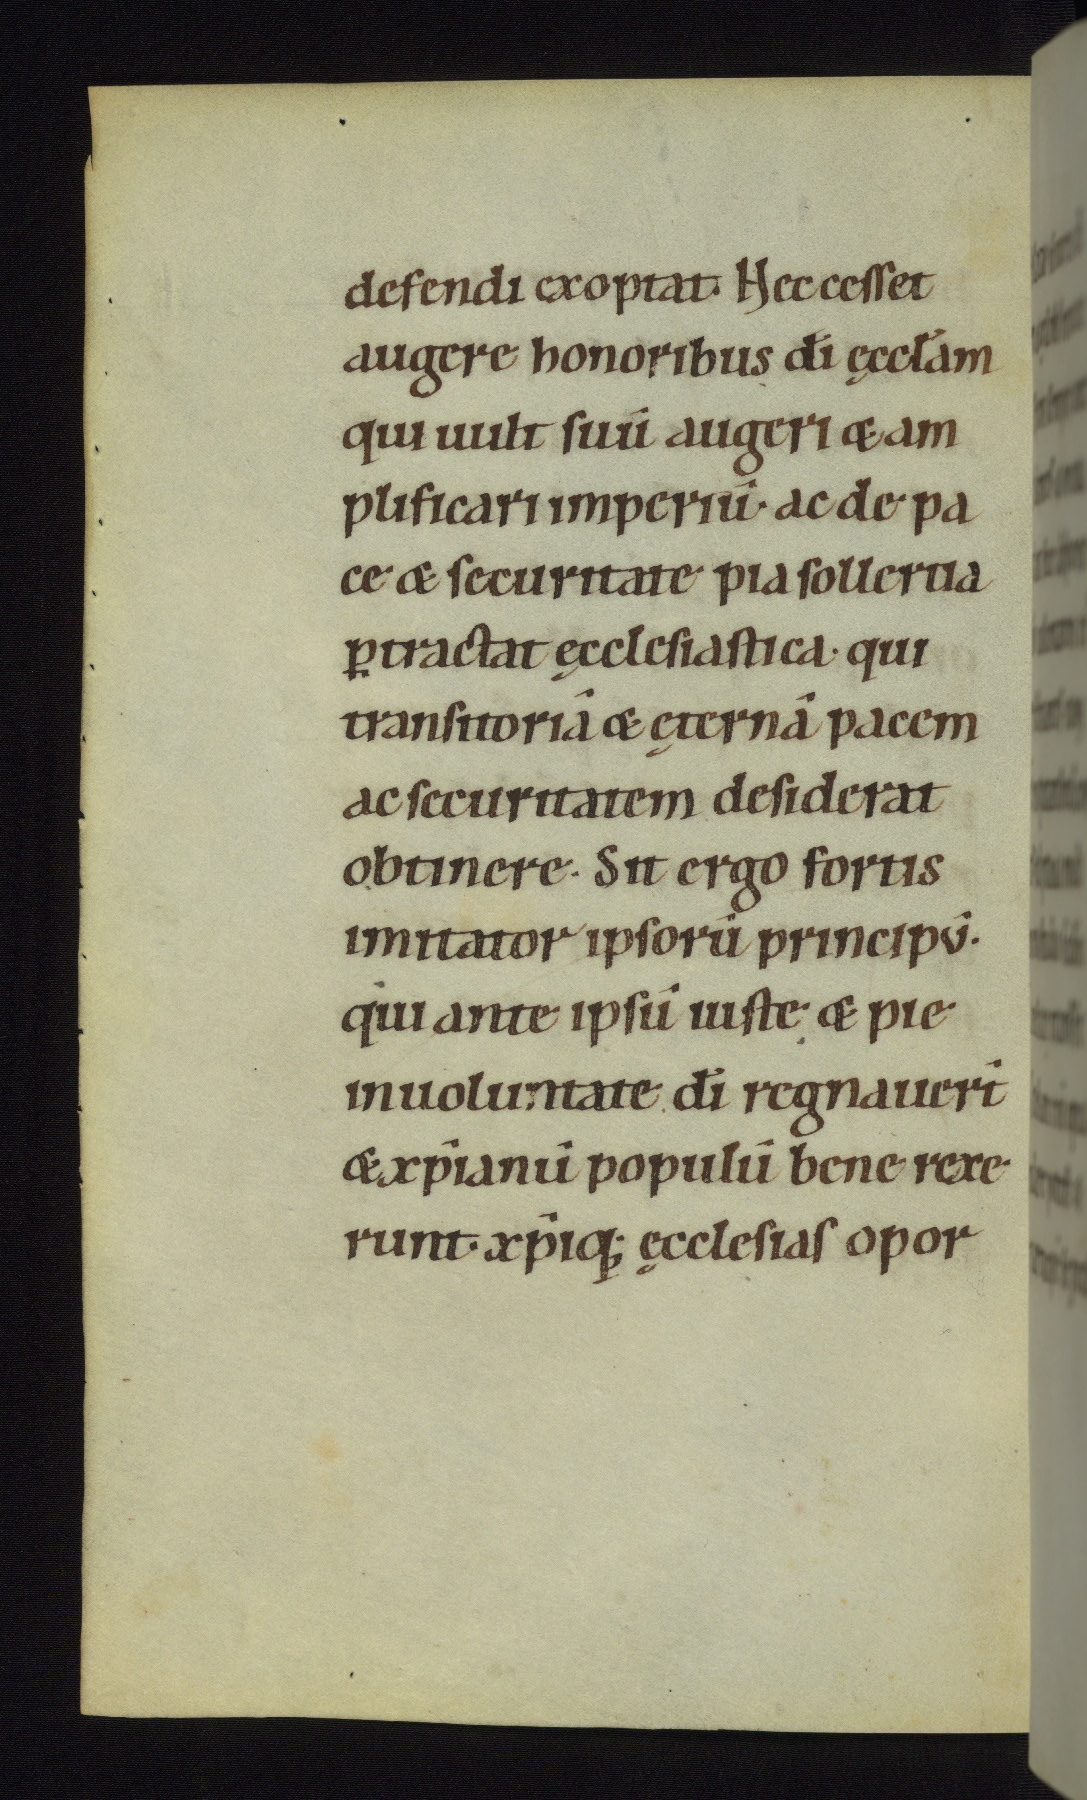 defendi exoptat· Hec cesset
augere honoribus dī ęccl̄am
qui uult suū augeri & am
plificari imperiū· ac de pa
ce & securitate pia sollertia
ꝑtractat ęcclesiastica· qui
transitoriā & ęternā pacem
ac securitatem desiderat
obtinere· Sit ergo fortis
imitator ipsorū principū·
qui ante ipsū iuste & pie
in uoluntate dī regnauer̄t
& xp̄ianū populū bene rexe
runt· xp̄iq; ęcclesias opor